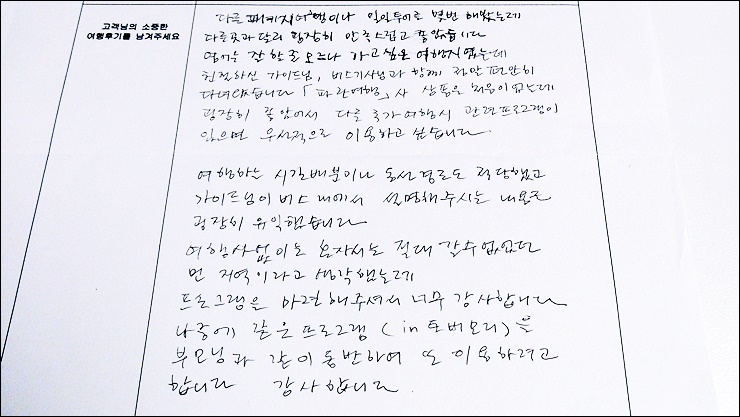 고객님의 소중한
여행후기를 남겨주세요
다른 패키지여행이나 일일투어로 몇번 해봤는데
다른곳과 달리 굉장히 만족스럽고 좋았습니다
영어는 잘 할줄 모르나 가고싶은 여행지였는데
친절하신 가이드님, 버스기사님과 함께 편안히
다녀왔습니다 「파란여행」사 상품은 처음이었는데
굉장히 좋았어서 다른 국가 여행시 관련프로그램이
있으면 우선적으로 이용하고 싶습니다.
여행하는 시간배분이나 동선경로도 적당했고
가이드님이 버스 내에서 설명해주시는 내용도
굉장히 유익했습니다
여행사없이는 혼자서는 절대 갈수없었던
먼 지역이라고 생각했는데
프로그램을 마련해주셔서 너무 감사합니다
나중에 같은 프로그램 (in 토버모리)을
부모님과 같이 동반하여 또 이용하려고
합니다 감사합니다.